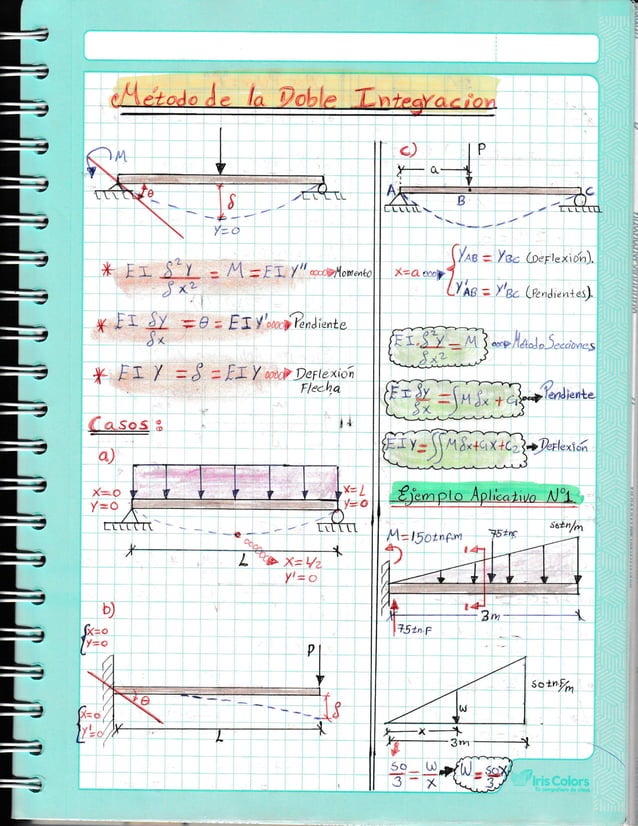 Método de la Doble Integracion
M
θ
δ
Y=0
* EI δ²Y/δx² = M = EI Y'' Momento
* EI δY/δx = θ = EI Y' Pendiente
* EI Y = δ = EI Y Deflexión
Flecha
Casos:
a)
X=0
Y=0
X=L
Y=0
L
X=L/2
Y'=0
b)
X=0
Y=0
P
θ
δ
X=0
Y'=0
L
c)
P
a
A
B
C
X=a
YAB = YBC (Deflexión).
Y'AB = Y'BC (Pendientes).
EI δ²Y/δx² = M Método Secciones
EI δY/δx = ∫Mδx + C1 Pendiente
EIY = ∫∫Mδx+C1X+C2 Deflexión
Ejemplo Aplicativo N°1
50tn/m
M=150tnf.m
75tnf
1
1
3m
75tn.F
50tnf/m
W
x
3m
50/3 = W/X W = 50X/3
Iris Colors
Tu compañero de clase